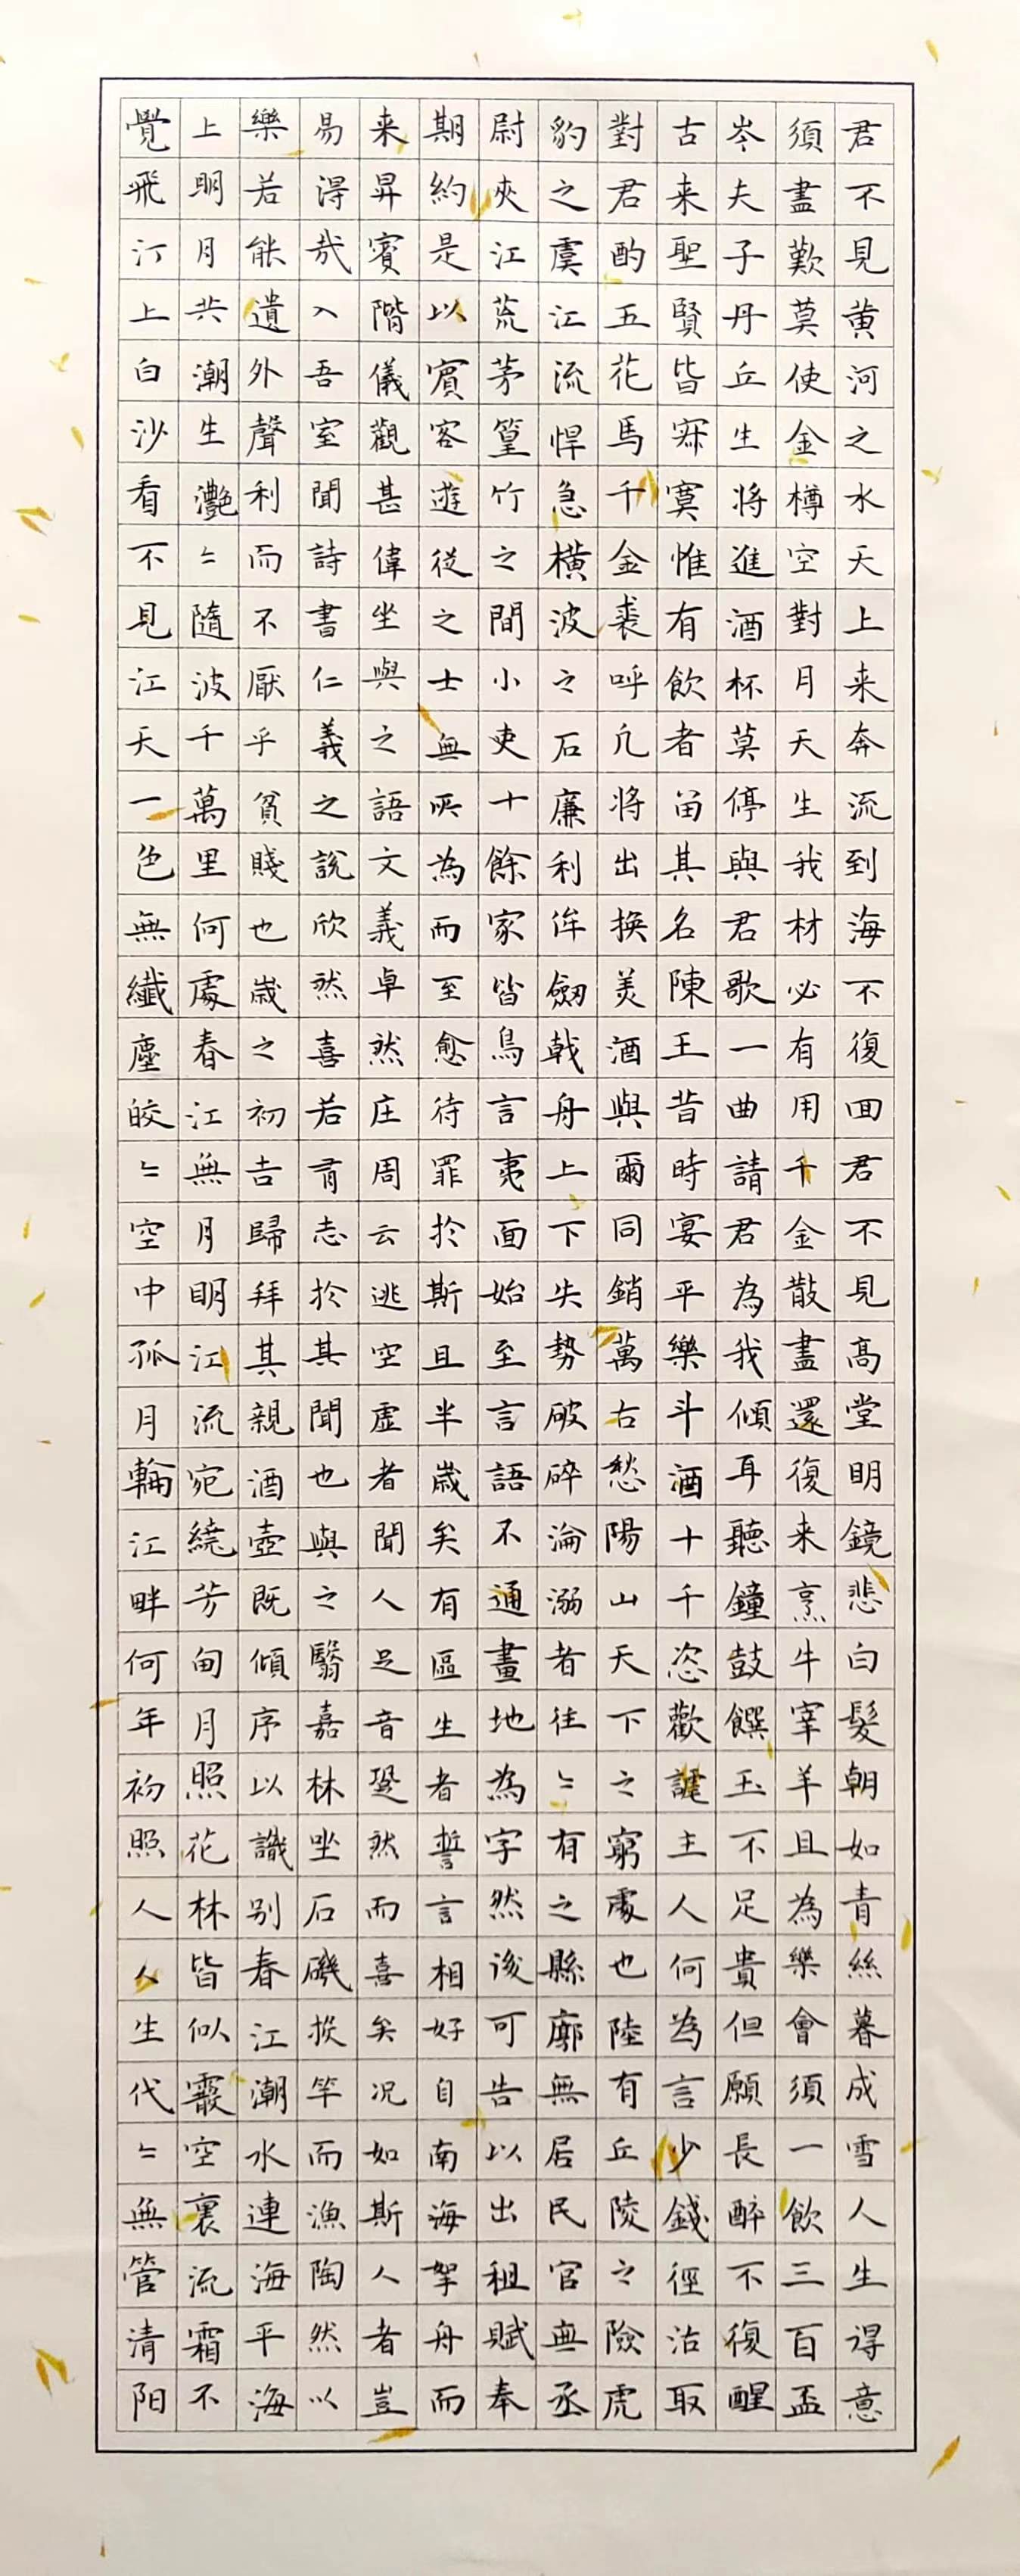 君不見黃河之水天上来奔流到海不復回君不見高堂明鏡悲白髮朝如青絲暮成雪人生得意
須盡歡莫使金樽空對月天生我材必有用千金散盡還復来烹牛宰羊且為樂會須一飲三百盃
岑夫子丹丘生將進酒杯莫停與君歌一曲請君為我傾耳聽鐘鼓饌玉不足貴但願長醉不復醒
古来聖賢皆寂寞惟有飲者留其名陳王昔時宴平樂斗酒十千恣歡謔主人何為言少錢徑沽取
對君酌五花馬千金裘呼兒將出換美酒與爾同銷萬古愁陽山天下之窮處也陸有丘陵之險虎
豹之虞江流悍急橫波之石廉利侔劒戟舟上下失勢破碎淪溺者往〻有之縣廓無居民官無丞
尉夾江荒茅篁竹之間小吏十餘家皆鳥言夷面始至言語不通畫地為字然後可告以出租賦奉
期約是以賓客遊從之士無所為而至愈待罪於斯且半歲矣有區生者誓言相好自南海挐舟而
来昇賓階儀觀甚偉坐與之語文義卓然庄周云逃空虛者聞人足音跫然而喜矣况如斯人者豈
易得哉入吾室聞詩書仁義之說欣然喜若有志於其聞也與之翳嘉林坐石磯投竿而漁陶然以
樂若能遺外聲利而不厭乎貧賤也歲之初吉歸拜其親酒壺既傾序以識别春江潮水連海平海
上明月共潮生灔〻隨波千萬里何處春江無月明江流宛繞芳甸月照花林皆似霰空裏流霜不
覺飛汀上白沙看不見江天一色無纖塵皎〻空中孤月輪江畔何年初照人人生代〻無管清阳